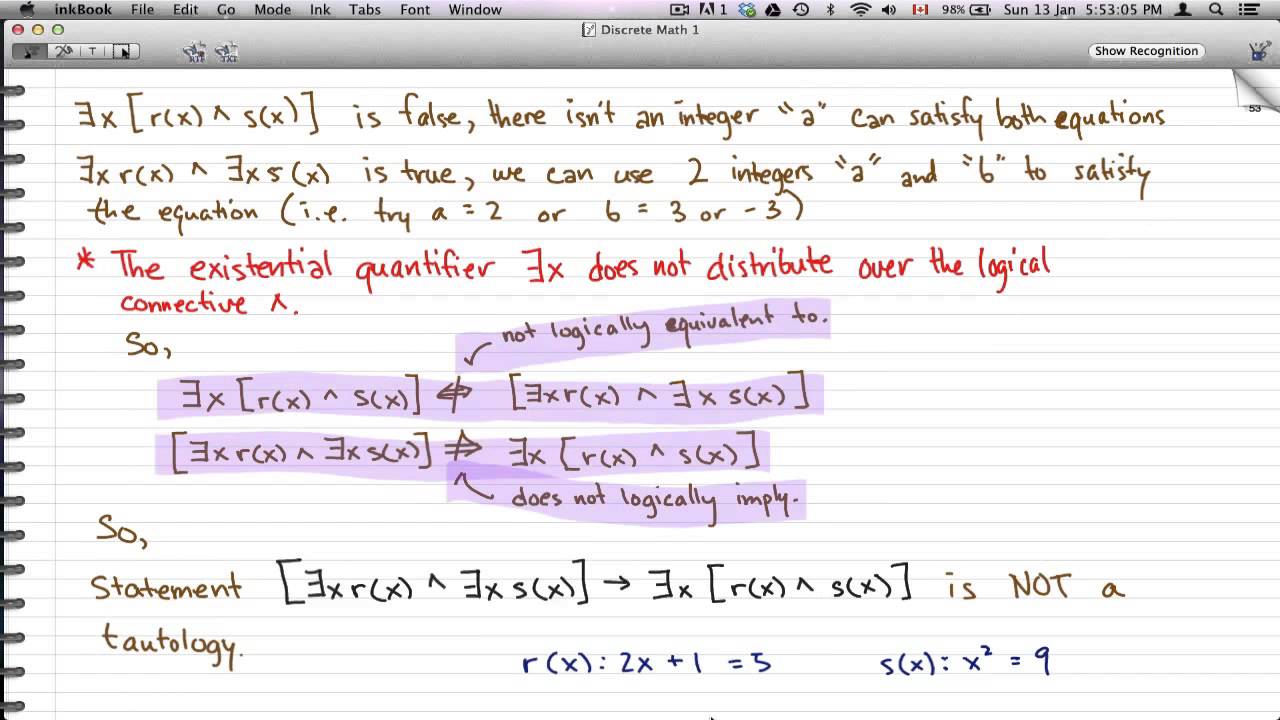 inkBook File Edit Go Mode Ink Tabs Font Window 1 98% Sun 13 Jan 5:53:05 PM
Discrete Math 1
T
Show Recognition
RTF TXT
53
∃x [r(x) ∧ s(x)] is false, there isn't an integer "a" can satisfy both equations
∃x r(x) ∧ ∃x s(x) is true, we can use 2 integers "a" and "b" to satisfy
the equation (i.e. try a = 2 or b = 3 or -3)
* The existential quantifier ∃x does not distribute over the logical
connective ∧.
So,
not logically equivalent to.
∃x [r(x) ∧ s(x)] ⇎ [∃x r(x) ∧ ∃x s(x)]
[∃x r(x) ∧ ∃x s(x)] ⇏ ∃x [r(x) ∧ s(x)]
does not logically imply.
So,
Statement [∃x r(x) ∧ ∃x s(x)] → ∃x [r(x) ∧ s(x)] is NOT a
tautology.
r(x): 2x + 1 = 5 s(x): x² = 9